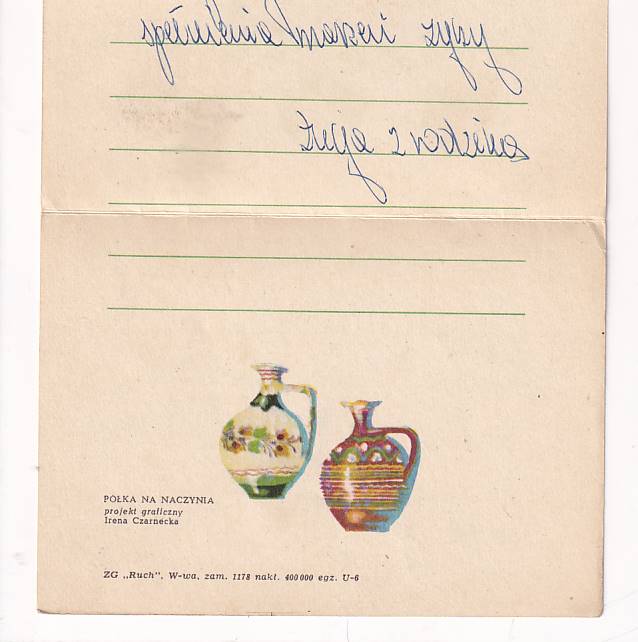 spełnienia marzeń życzy
z rodziną
PÓŁKA NA NACZYNIA
projekt graficzny
Irena Czarnecka
ZG „Ruch", W-wa, zam. 1178 nakł. 400 000 egz. U-6